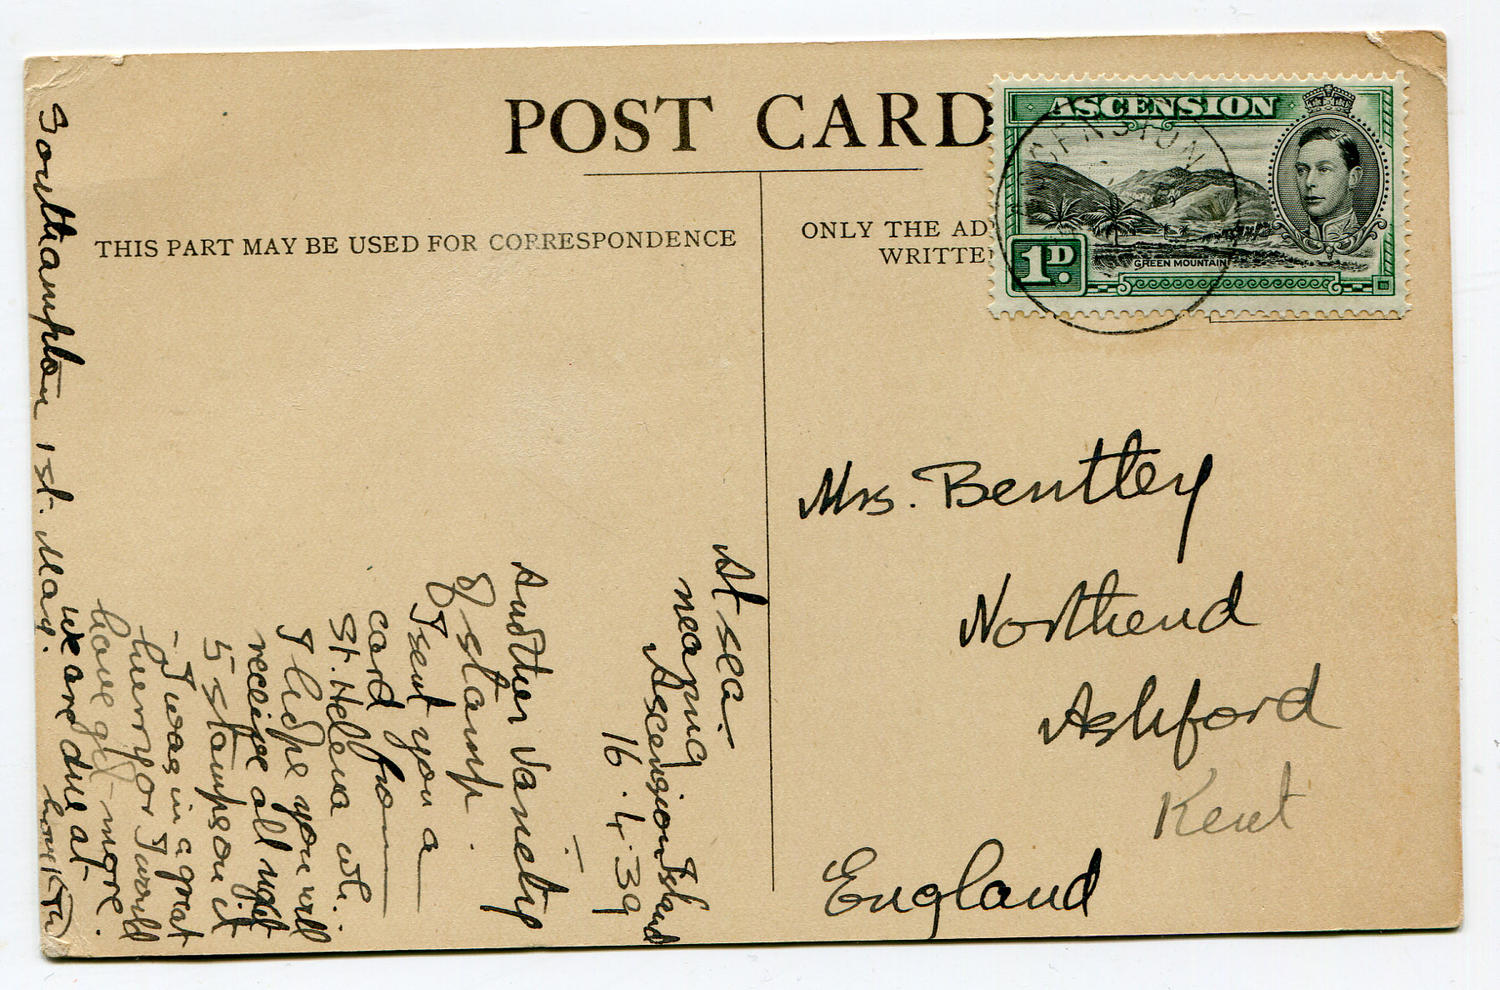 POST CARD
THIS PART MAY BE USED FOR CORRESPONDENCE
ONLY THE AD
WRITTE
ASCENSION
ASCENSION
GREEN MOUNTAIN
1D.
Mrs. Bentley
Northend
Ashford
Kent
England
At sea.
nearing
Ascension Island
16.4.39
Another variety
of stamp.
I sent you a
card from
St. Helena wh.
I hope you will
receive all right
5 stamps on it
- I was in a great
hurry or I would
have got more.
We are due at
Southampton 1st. May.